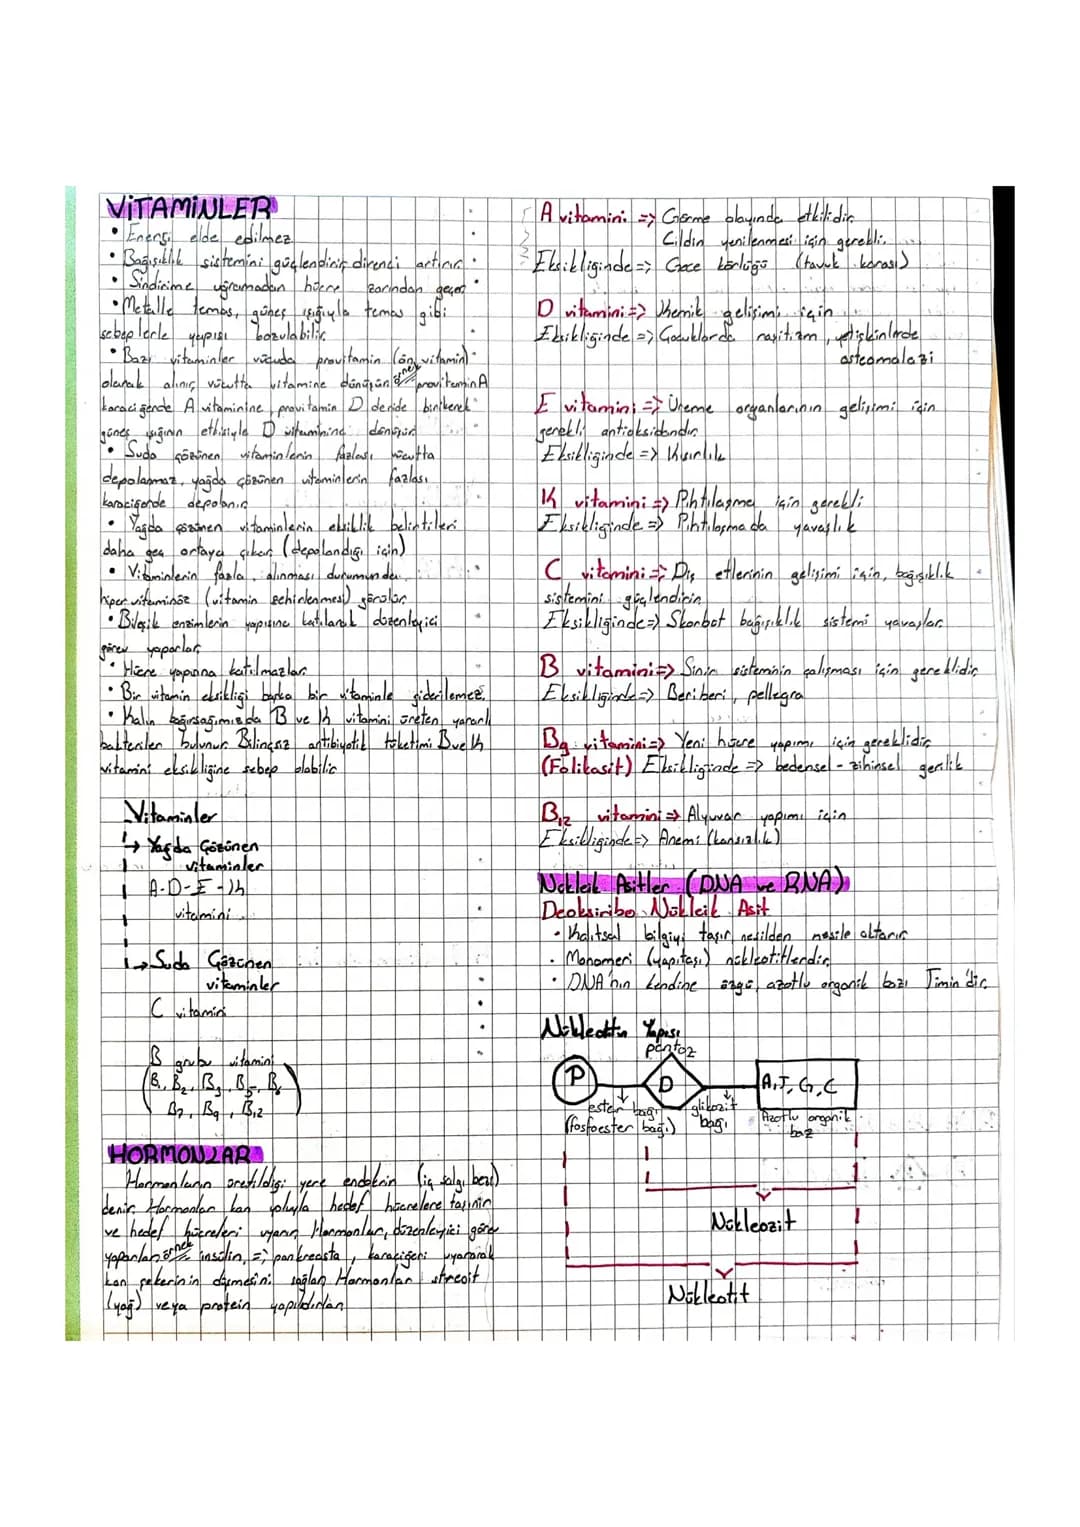 VİTAMİNLER
• Enerji elde edilmez
• Bağışıklık sistemini güçlendirir, direnci artırır.
• Sindirime uğramadan hücre zarından geçer
• Metalle temas, güneş ışığıyla temas gibi
sebeplerle yapısı bozulabilir.
• Bazı vitaminler vücuda provitamin (ön vitamin)
olarak alınır, vücutta vitamine dönüşür örnek provitamin A
karaciğerde A vitaminine, provitamin D deride birikerek
güneş ışığının etkisiyle D vitaminine dönüşür
• Suda çözünen vitaminlerin fazlası vücutta
depolanmaz, yağda çözünen vitaminlerin fazlası
karaciğerde depolanır
• Yağda çözünen vitaminlerin eksiklik belirtileri
daha geç ortaya çıkar (depolandığı için)
• Vitaminlerin fazla alınması durumunda
hipervitaminöz (vitamin zehirlenmesi) görülür
• Bileşik enzimlerin yapısına katılarak düzenleyici
görev yaparlar
• Hücre yapısına katılmazlar.
• Bir vitamin eksikliği başka bir vitaminle giderilemez.
• Kalın bağırsağımızda B ve K vitamini üreten yararlı
bakteriler bulunur. Bilinçsiz antibiyotik tüketimi B ve K
vitamini eksikliğine sebep olabilir
Vitaminler
↳ Yağda Çözünen
vitaminler
A-D-E-K
vitamini
→ Suda Çözünen
vitaminler
C vitamini
B grubu vitamini
(B1, B2, B3, B5, B6
B7, B9, B12)
HORMONLAR
Hormonların üretildiği yere endokrin (iç salgı bezi)
denir. Hormonlar kan yoluyla hedef hücrelere taşınır
ve hedef hücreleri uyarır. Hormonlar, düzenleyici görev
yaparlar örnek insülin => pankreasta, karaciğeri uyararak
kan şekerinin düşmesini sağlar. Hormonlar streoit
(yağ) veya protein yapılıdırlar
A vitamini => Görme olayında etkilidir
Cildin yenilenmesi için gerekli.
Eksikliğinde => Gece körlüğü (tavuk karası)
D vitamini => Kemik gelişimi için
Eksikliğinde => Çocuklarda raşitizm, yetişkinlerde
osteomalazi
E vitamini => Üreme organlarının gelişimi için
gerekli antioksidandır
Eksikliğinde => Kısırlık
K vitamini => Pıhtılaşma için gerekli
Eksikliğinde => Pıhtılaşmada yavaşlık
C vitamini => Diş etlerinin gelişimi için, bağışıklık
sistemini güçlendirir
Eksikliğinde => Skorbot bağışıklık sistemi yavaşlar
B vitamini => Sinir sisteminin çalışması için gereklidir
Eksikliğinde => Beriberi, pellegra
B9 vitamini => Yeni hücre yapımı için gereklidir
(Folikasit) Eksikliğinde => bedensel - zihinsel gerilik
B12 vitamini => Alyuvar yapımı için
Eksikliğinde => Anemi (kansızlık)
Nükleik Asitler (DNA ve RNA)
Deoksiribo Nükleik Asit
• Kalıtsal bilgiyi taşır, nesilden nesile aktarır
• Monomeri (yapıtaşı) nükleotitlerdir
• DNA'nın kendine özgü, azotlu organik bazı Timin'dir.
Nükleotitin Yapısı
pentoz
P D A, T, G, C
ester bağı glikozit Azotlu organik
(fosfoester bağı) bağı baz
Nükleozit
Nükleotit